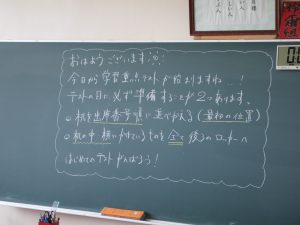 おはようございます
今日から学習重点テストが始まりますね…!
テストの日に必ず準備することが2つあります。
机を出席番号順に並べかえる(最初の位置)
机の中、横にかけているものを全て後ろのロッカーへ
はじめてのテストがんばろう!